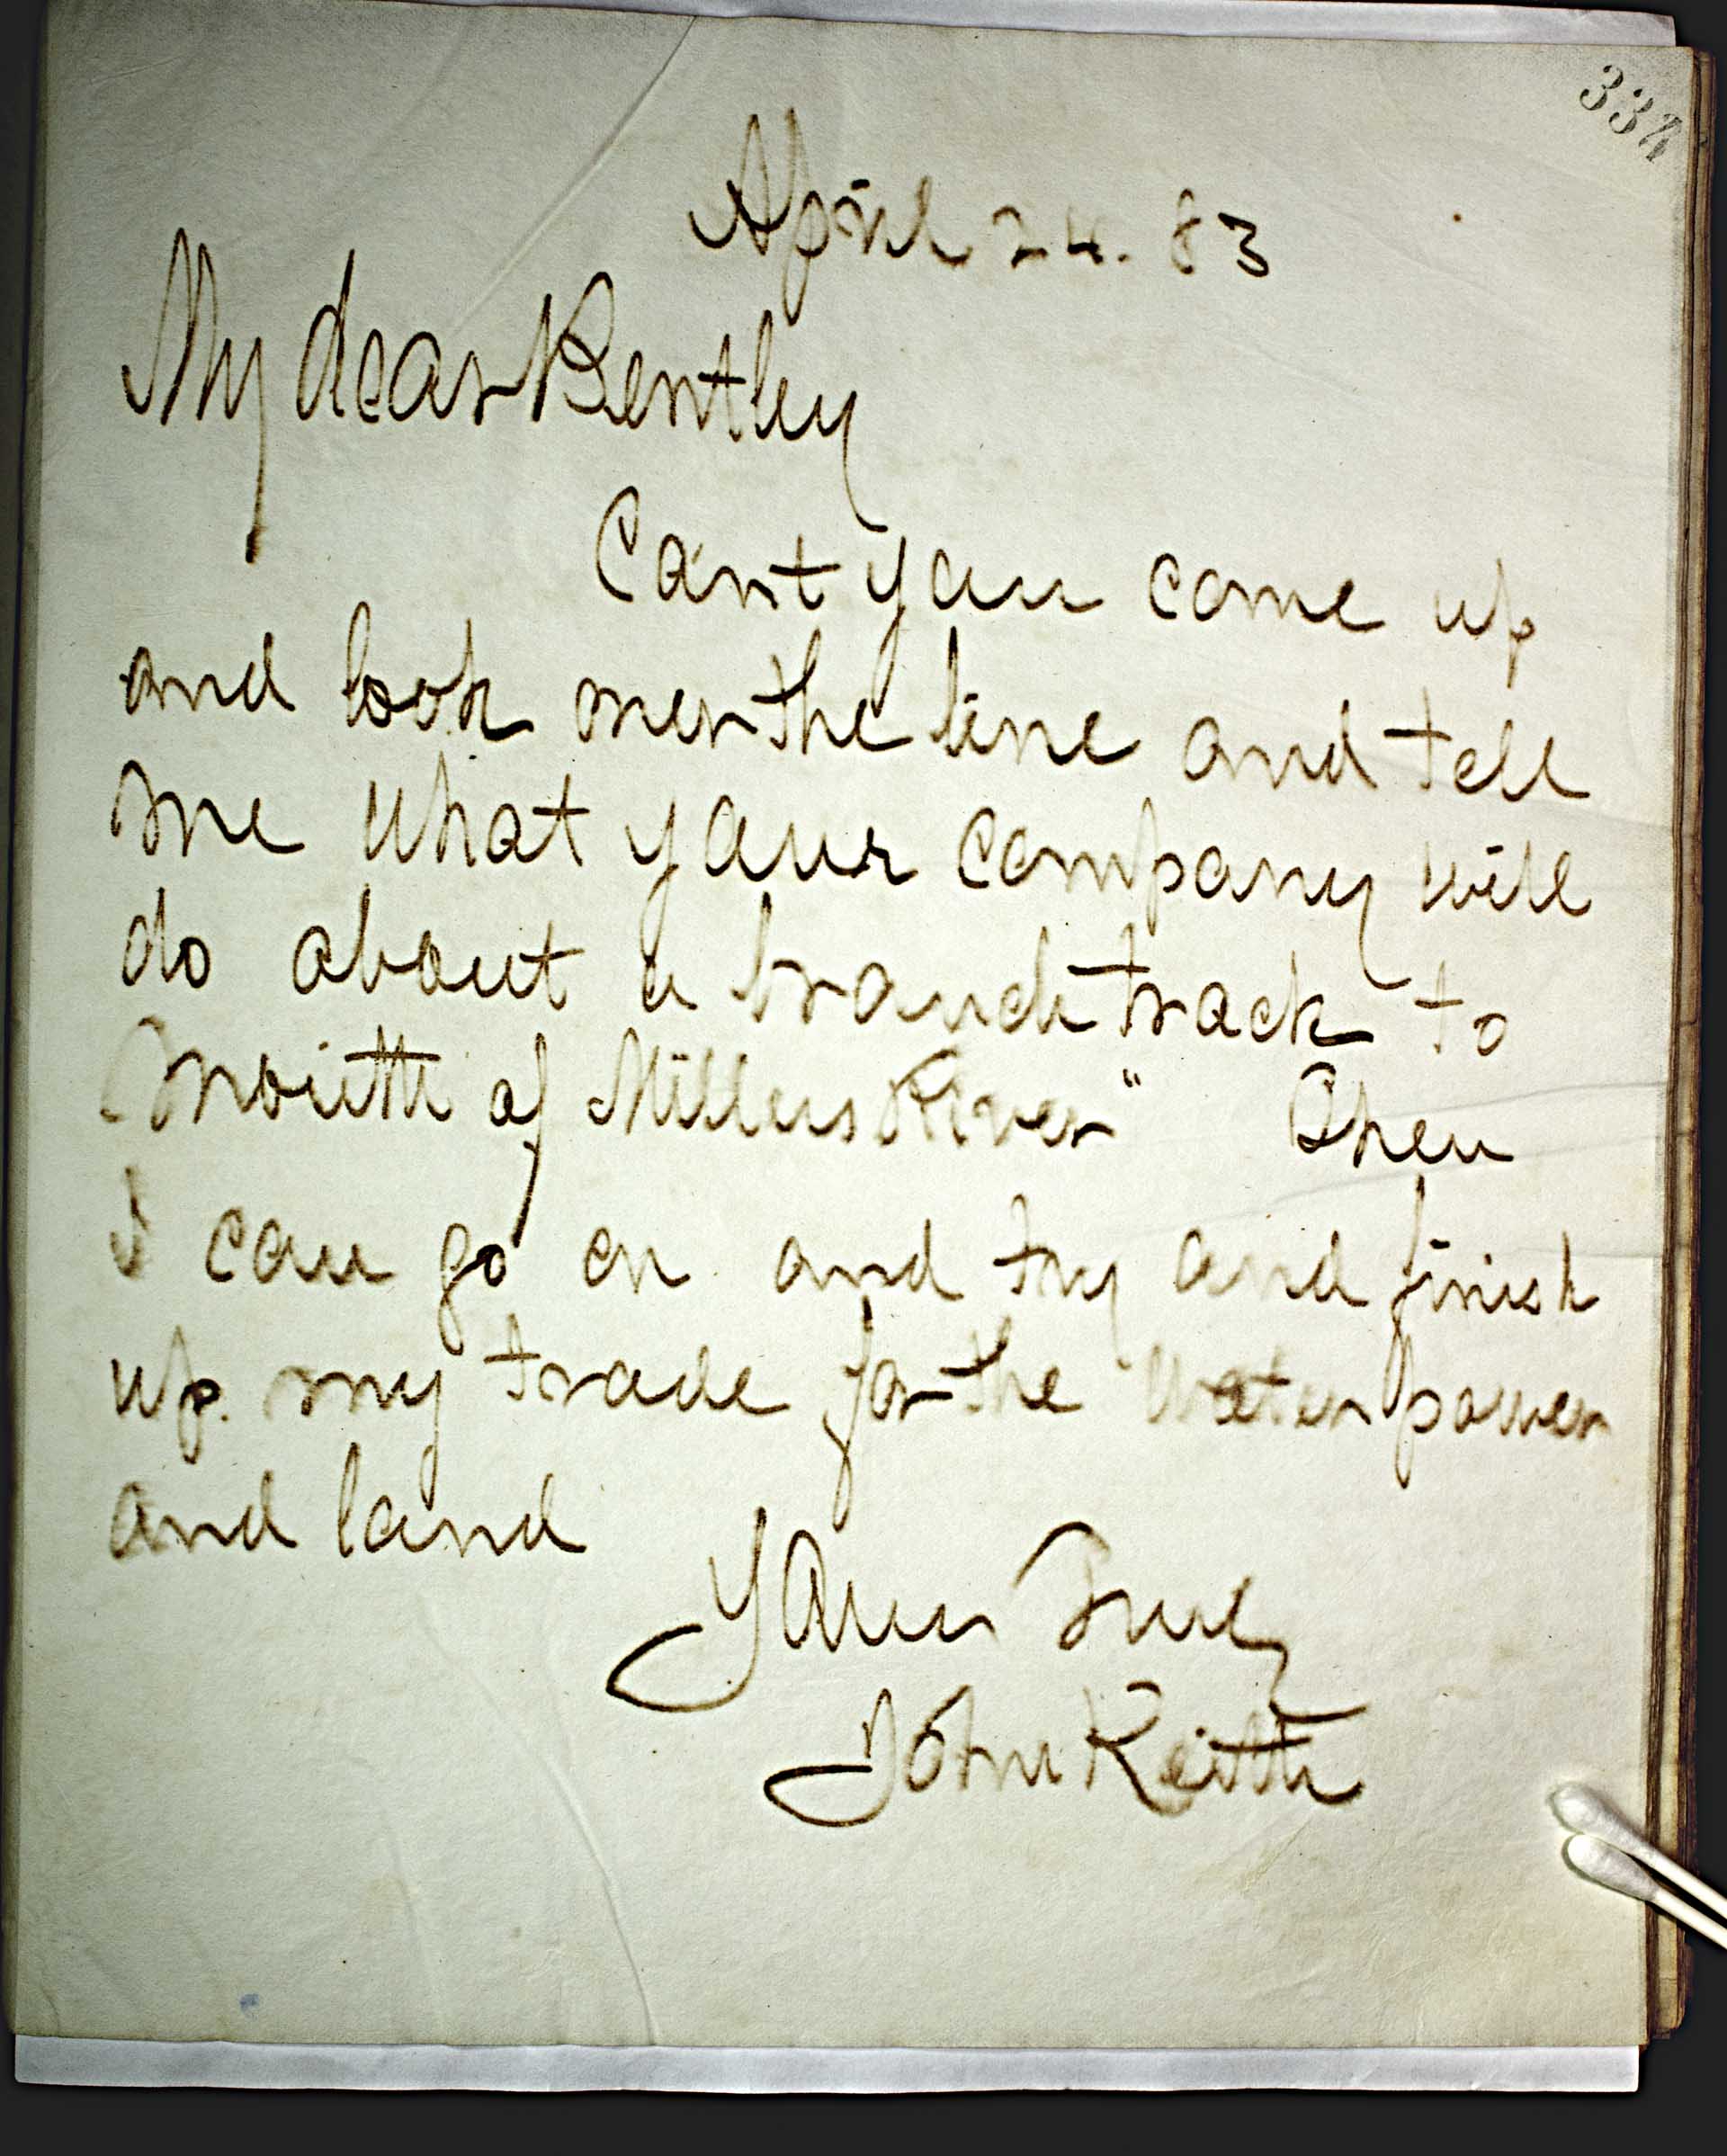 334
April 24. 83
My dear Bentley
Can't you come up
and look over the line and tell
me what your company will
do about a branch track to
mouth of Millers River" Then
I can go on and try and finish
up my trade for the Water power
and land
Yours Truly
John Keith